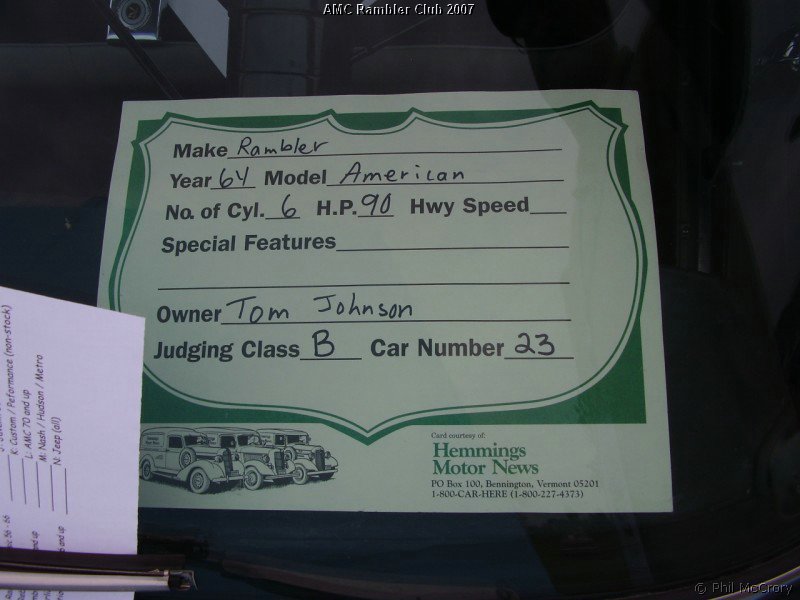 AMC Rambler Club 2007
Make Rambler
Year 64 Model American
No. of Cyl. 6 H.P. 90 Hwy Speed
Special Features
Owner Tom Johnson
Judging Class B Car Number 23
Card courtesy of:
Hemmings
Motor News
PO Box 100, Bennington, Vermont 05201
1-800-CAR-HERE (1-800-227-4373)
K: Custom / Peformance (non-stock)
L: AMC 70 and up
M: Nash / Hudson / Metro
N: Jeep (all)
© Phil McCrory